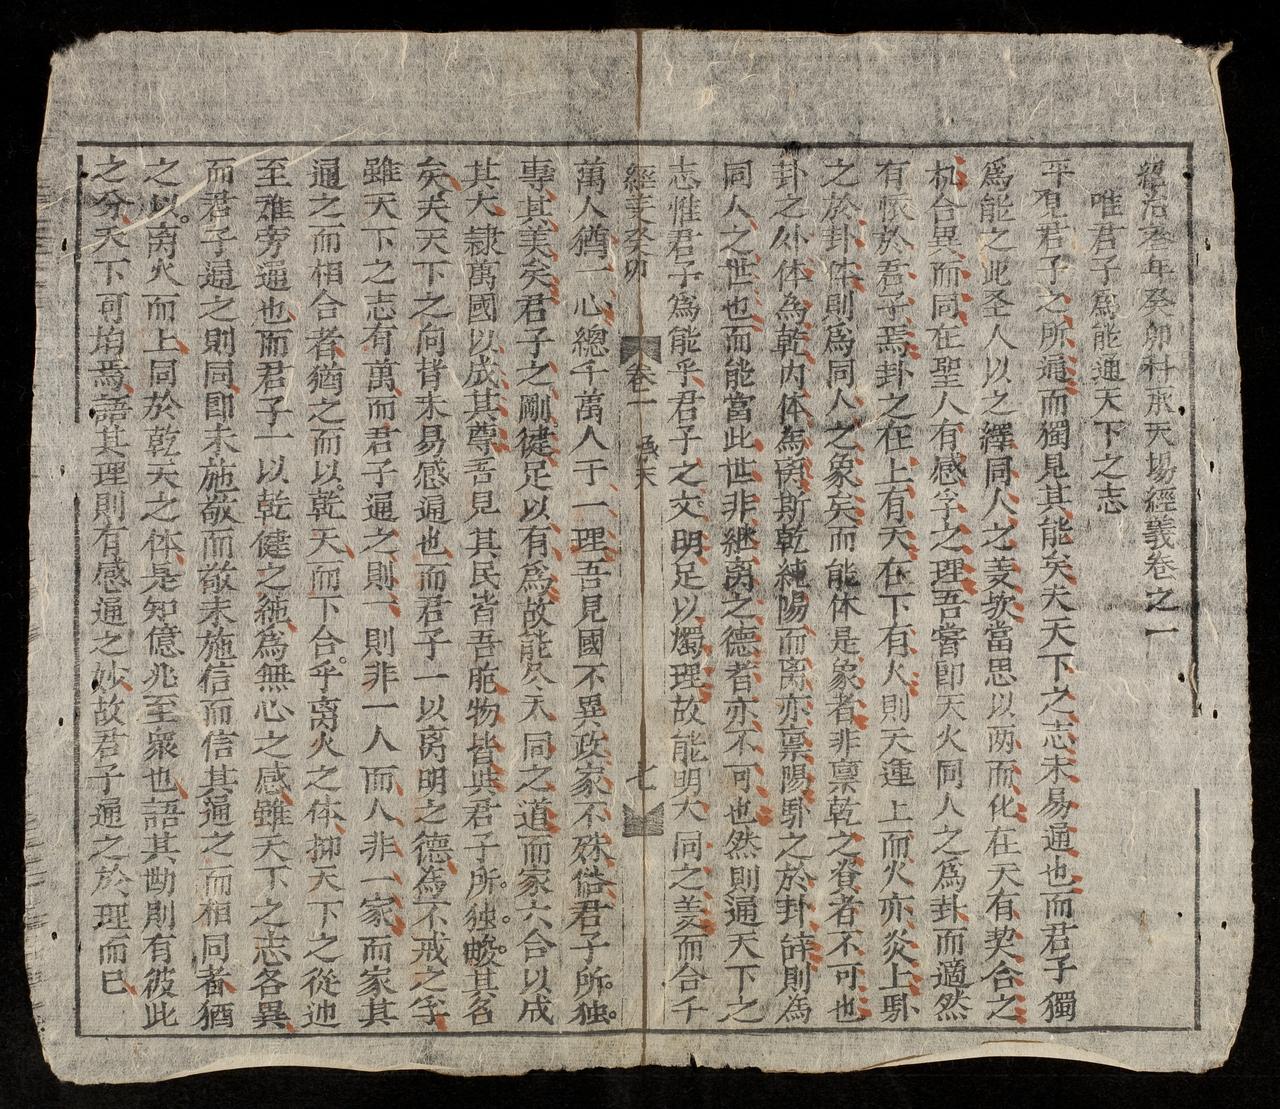 紹治叁年癸卯科承天場經義卷之一
唯君子為能通天下之志
平見君子之所通而獨見其能矣夫天下之志未易通也而君子獨
為能之此圣人以之繹同人之義歟當思以两而化在天有契合之
机合異而同在聖人有感孚之理吾嘗即天火同人之為卦而適然
有懷於君子焉卦之在上有天在下有火則天運上而火亦炎上馴
之於卦体則為同人之象矣而能体是象者非禀乾之資者不可也
卦之外体為乾内体為离斯乾純陽而离亦禀陽馴之於卦辞則為
同人之世也而能當此世非継离之德者亦不可也然則通天下之
志惟君子為能乎君子之文明足以燭理故能明大同之義而合千
經義癸卯 卷一 承天 七
萬人猶一心總千萬人于一理吾見國不異政家不殊俗君子所独
專其美矣君子之剛健足以有為故能尽大同之道而家六合以成
其大隷萬國以成其尊吾見其民皆吾胞物皆與君子所独畯其名
矣夫天下之向背未易感通也而君子一以离明之德為不戒之孚
雖天下之志有萬而君子通之則一則非一人而人非一家而家其
通之而相合者猶之而以乾天而下合乎离火之体抑天下之從迪
至难旁通也而君子一以乾健之純為無心之感雖天下之志各異
而君子通之則同即未施敬而敬未施信而信其通之而相同者猶
之以离火而上同於乾天之体是知億兆至衆也語其勘則有彼此
之分天下可均焉語其理則有感通之妙故君子通之於理而已